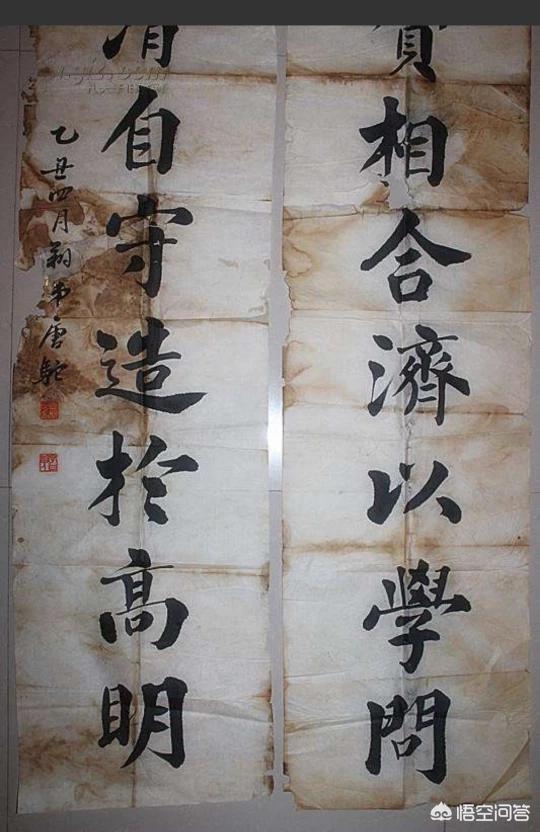 相合濟以學問
自守造於高明
乙丑四月弟唐駝
悟空问答